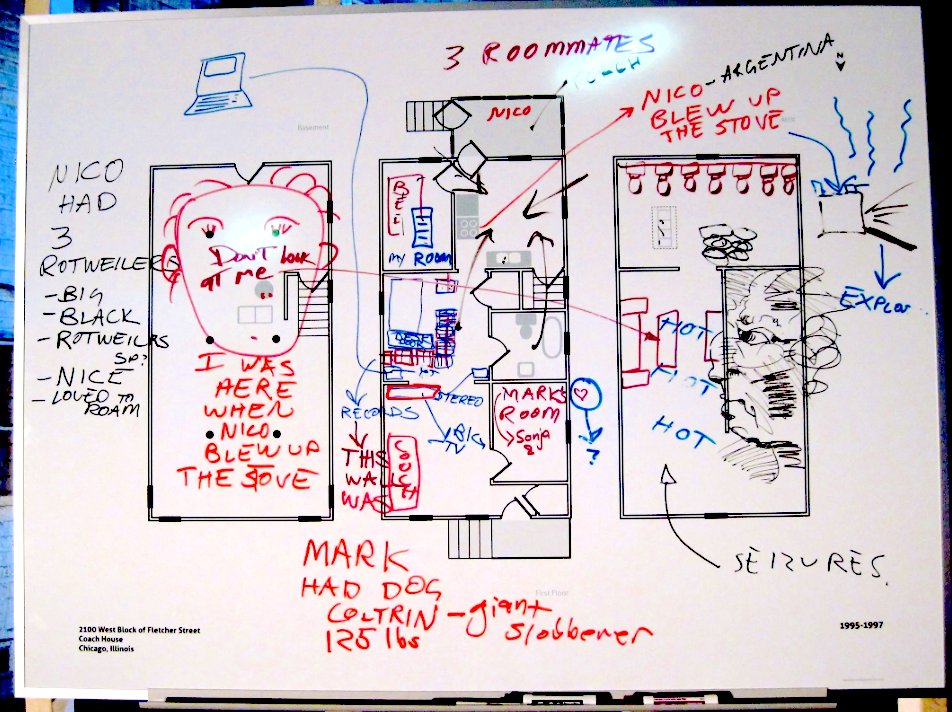 3 ROOMMATES
NICO
NICO - ARGENTINA
BLEW UP
THE STOVE
N
Basement
NICO
HAD
3
ROTWEILERS
- BIG
- BLACK
- ROTWEILRS
SP?
- NICE
- LOVED TO
ROAM
Don't look
at me
I WAS
HERE
WHEN
NICO
BLEW UP
THE STOVE
BED
MY ROOM
DESK
RECORDS
STEREO
BIG
TV
THIS
WALL
WAS
COUCH
MARK'S
ROOM
Sonja
&
?
HOT
HOT
HOT
EXPLO
SEIZURES.
MARK
HAD DOG
COLTRIN - giant
125 lbs slobberer
First Floor
2100 West Block of Fletcher Street
Coach House
Chicago, Illinois
1995-1997